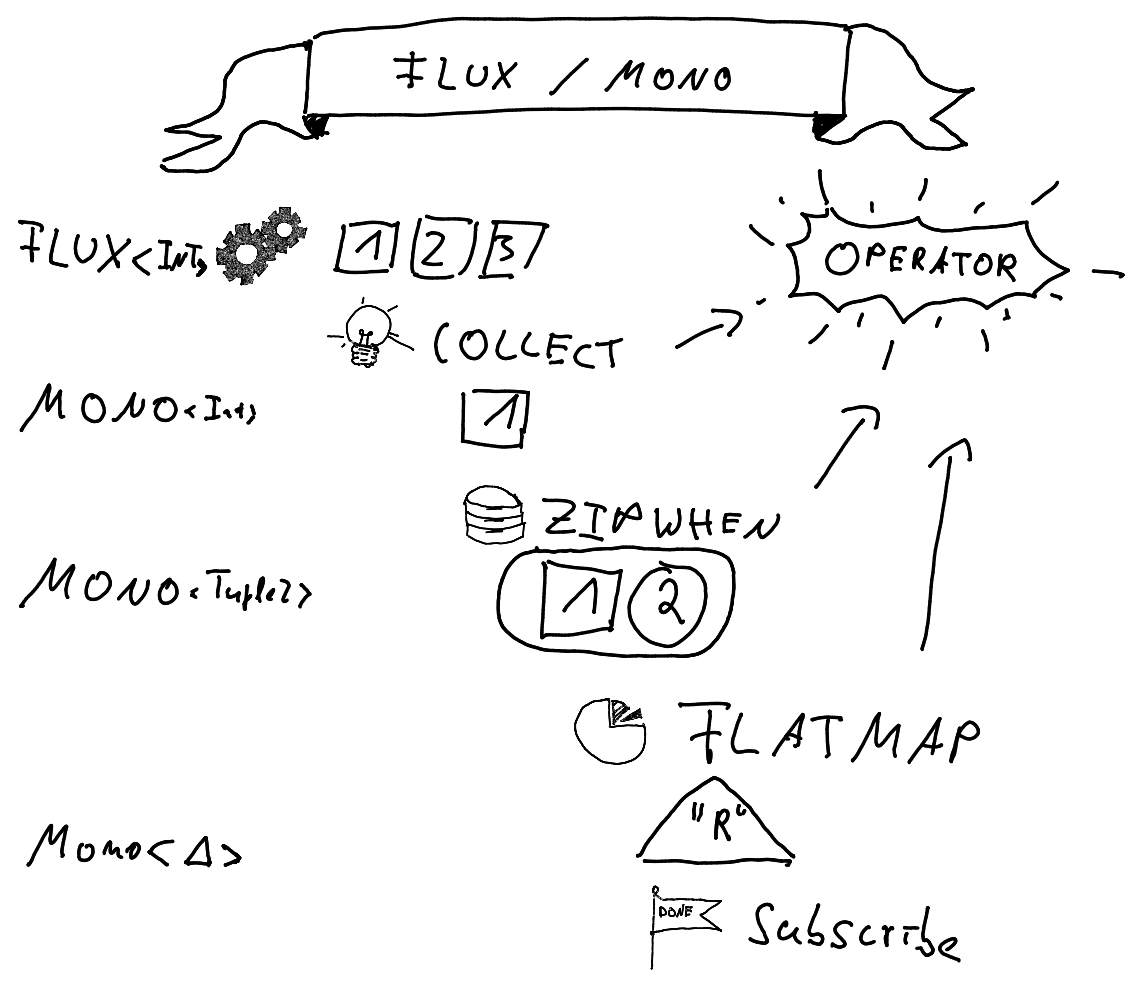 FLUX / MONO
FLUX<INT> 1 2 3
OPERATOR
COLLECT
MONO<Int> 1
ZIPWHEN
MONO<Tuple2> 1 2
FLATMAP
"R"
MONO<Δ>
DONE Subscribe